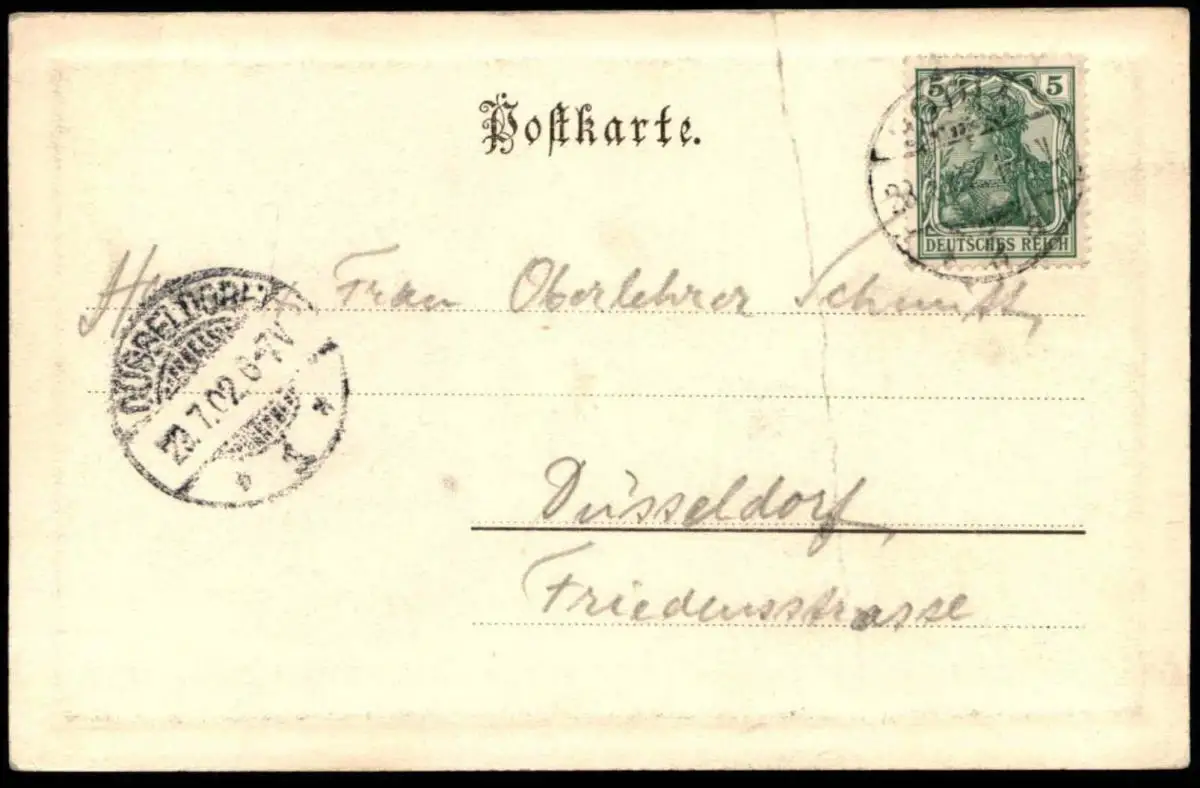 Postkarte.
5 5
DEUTSCHES REICH
Frau Oberlehrer Schmitt,
DÜSSELDORF
23.7.02. 6-7V
Düsseldorf,
Friedensstrasse